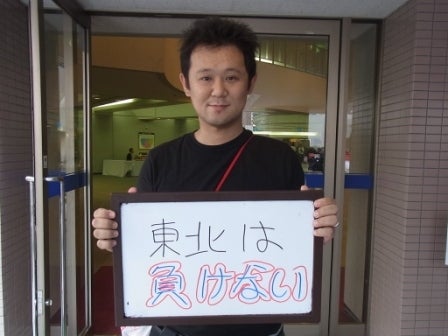 東北は
負けない